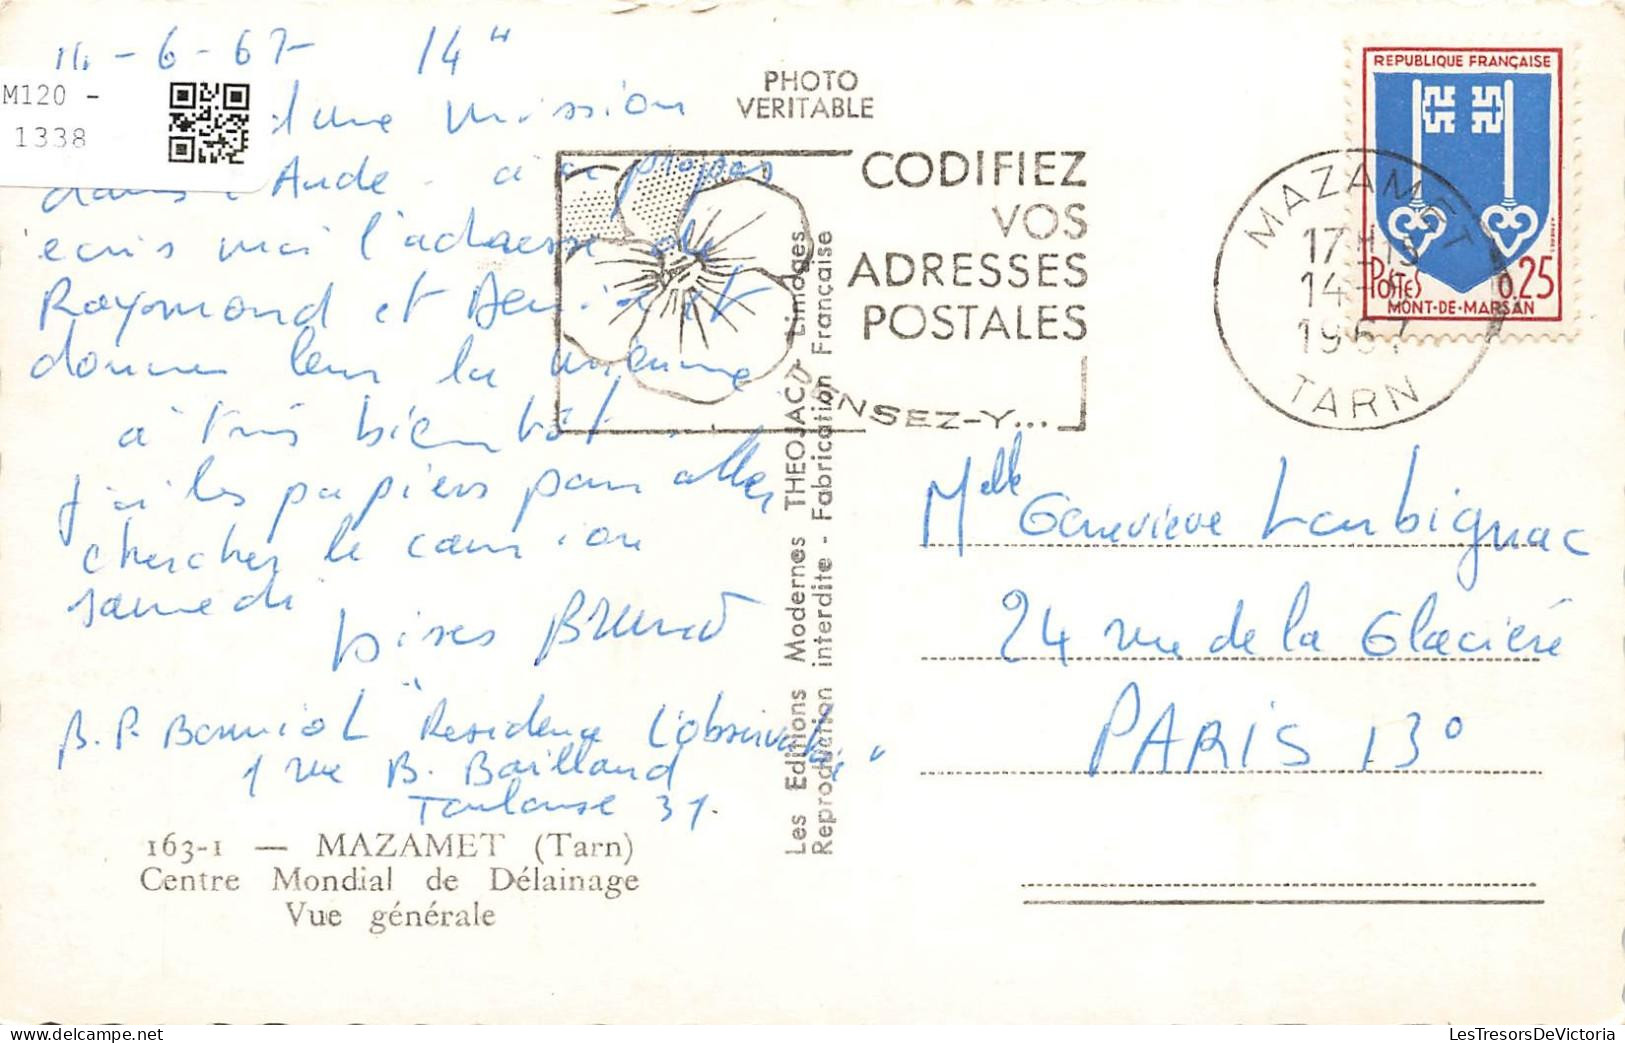 14-6-67 14H
M120 -
1338
d'une mission
dans l'Aude - à propos
ecris moi l'adresse de
Raymond et Denise et
donnes leur la mienne
à très bientôt
j'ai les papiers pour aller
chercher le camion
samedi
bises Bruno
B.P. Bonniol "Residence l'observatoire"
1 rue B. Baillaud
Toulouse 31.
163-1 — MAZAMET (Tarn)
Centre Mondial de Délainage
Vue générale
PHOTO
VERITABLE
CODIFIEZ
VOS
ADRESSES
POSTALES
PENSEZ-Y...
Les Editions Modernes THEOJAC Limoges
Reproduction interdite - Fabrication Française
MAZAMET
17H15
14-6
1967
TARN
REPUBLIQUE FRANÇAISE
POSTES 0,25
MONT-DE-MARSAN
Melle Geneviève Larbignac
24 rue de la Glacière
PARIS 13°
LesTresorsDeVictoria